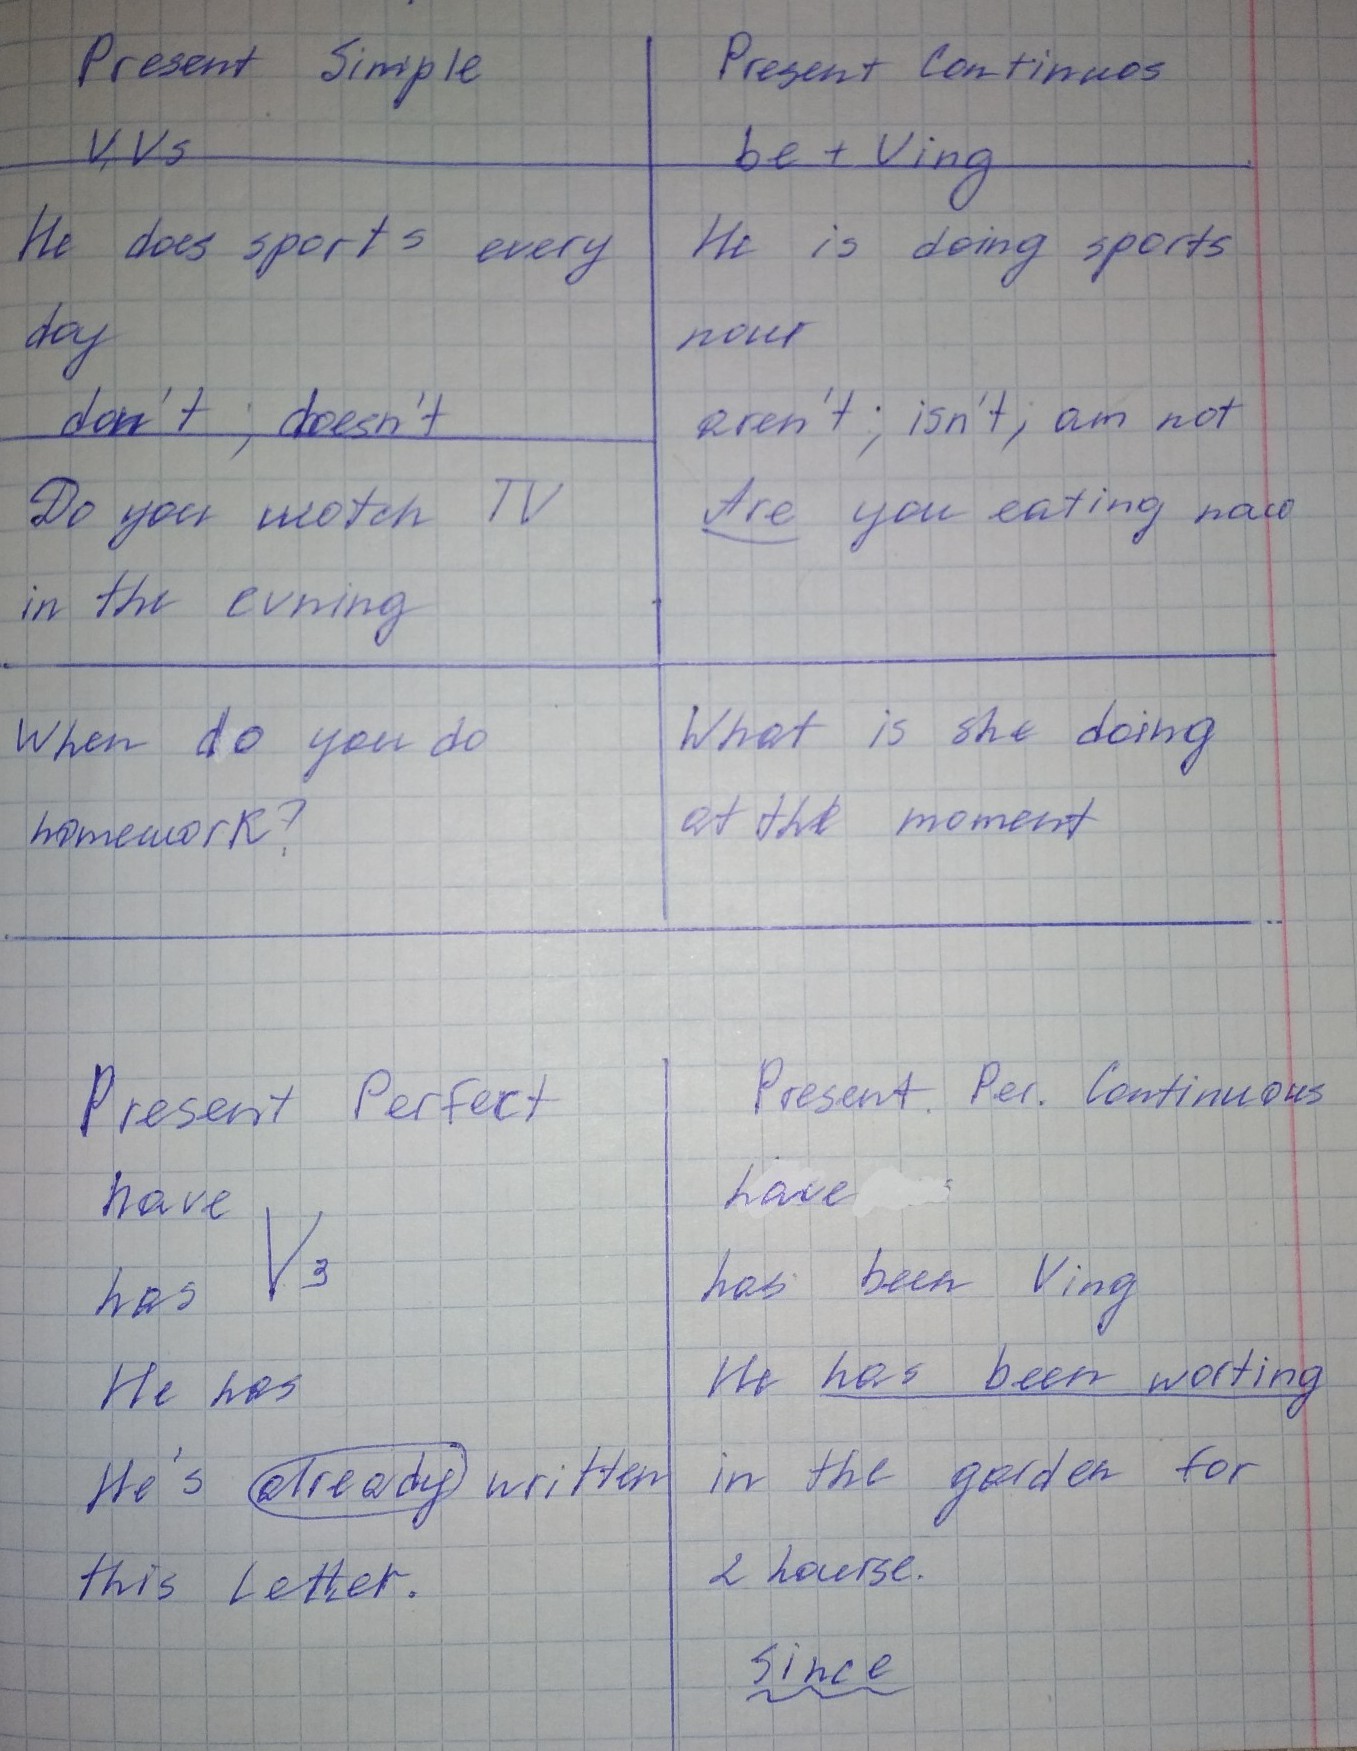 Present Simple
V, Vs
He does sports every
day
don't ; doesn't
Do you watch TV
in the evning
When do you do
homework?
Present Continuos
be + Ving
He is doing sports
now
aren't ; isn't ; am not
Are you eating now
What is she doing
at the moment
Present Perfect
have
has V3
He has
He's already written
this Letter.
Present. Per. Continuous
have
has been Ving
He has been worting
in the garden for
2 hourse.
Since